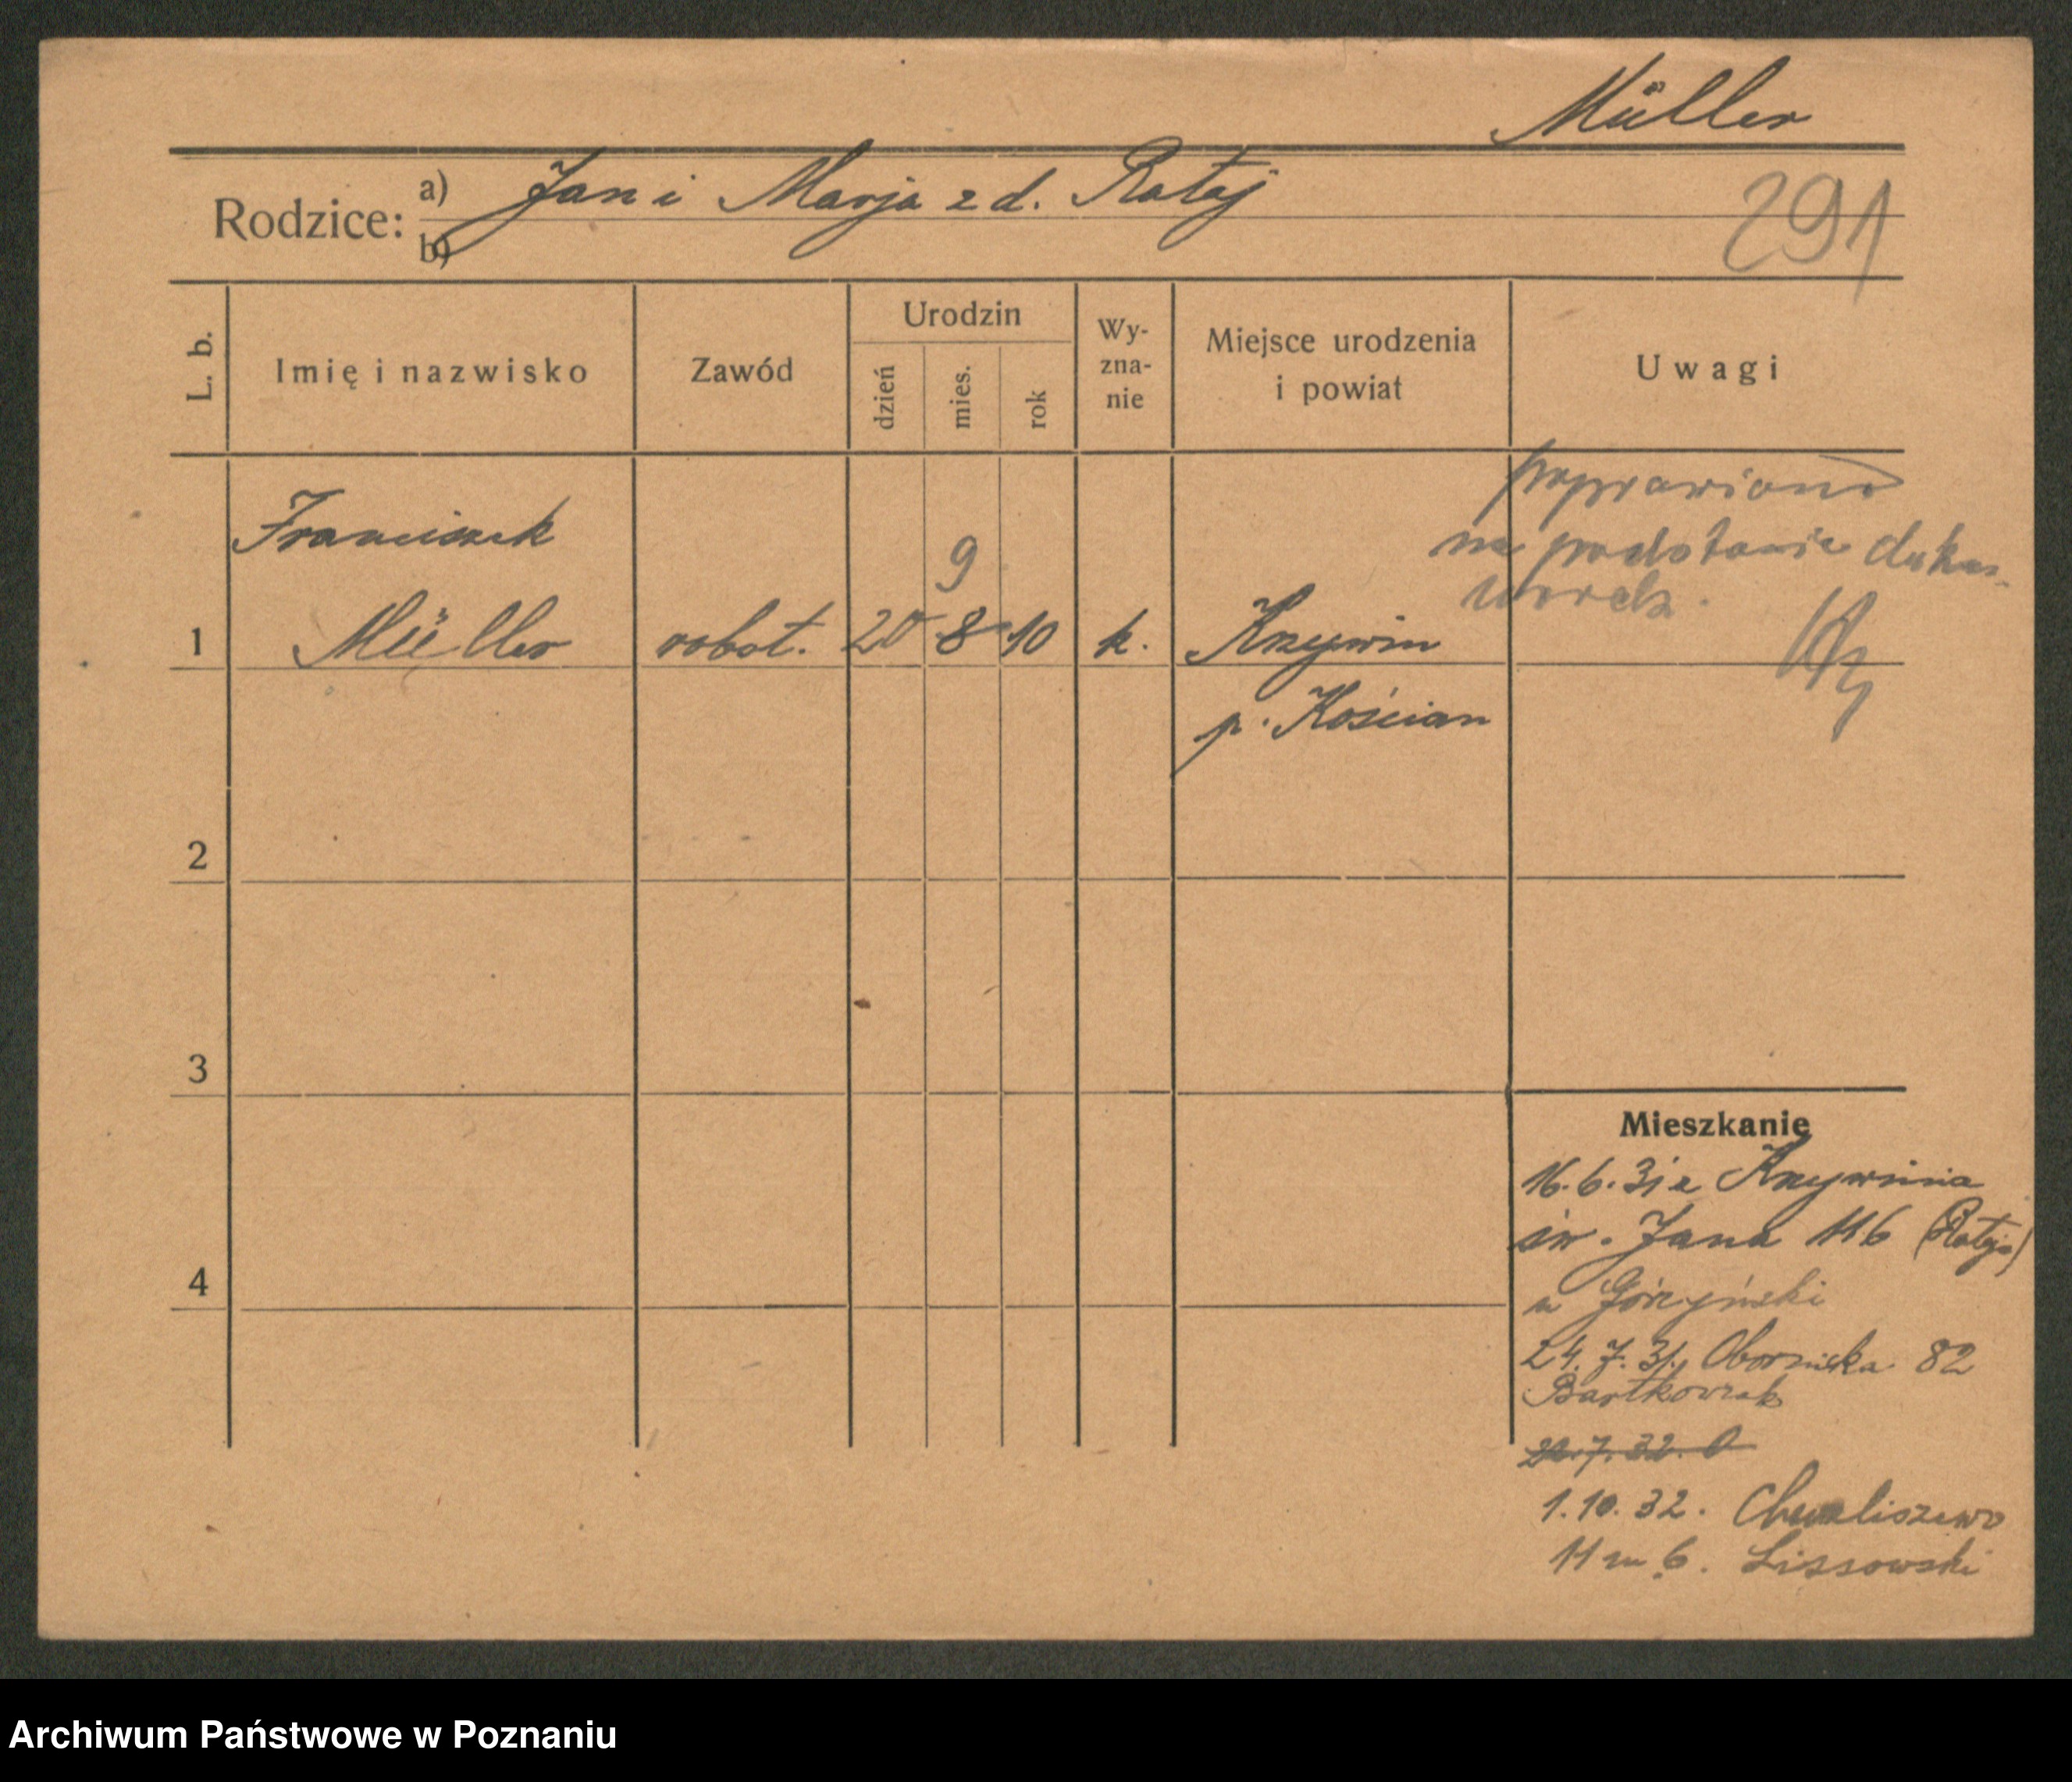 Müller
Rodzice: a) Jan i Marja z d. Rataj
b)
291
L. b. Imię i nazwisko Zawód Urodzin dzień mies. rok Wy-zna-nie Miejsce urodzenia i powiat Uwagi
poprawiono
na podstawie doku
Franciszek
9
1 Müller robot. 20 8 10 k. Krzywin
p. Kościan
2
3
4
Mieszkanie
16.6.31 z Krzywinia
św. Jana 116 (Rataje)
u Górzyński
24.7.31. Obornicka 82
Bartkowiak
1.10.32. Chwaliszewo
11 m 6. Lissowski
Archiwum Państwowe w Poznaniu